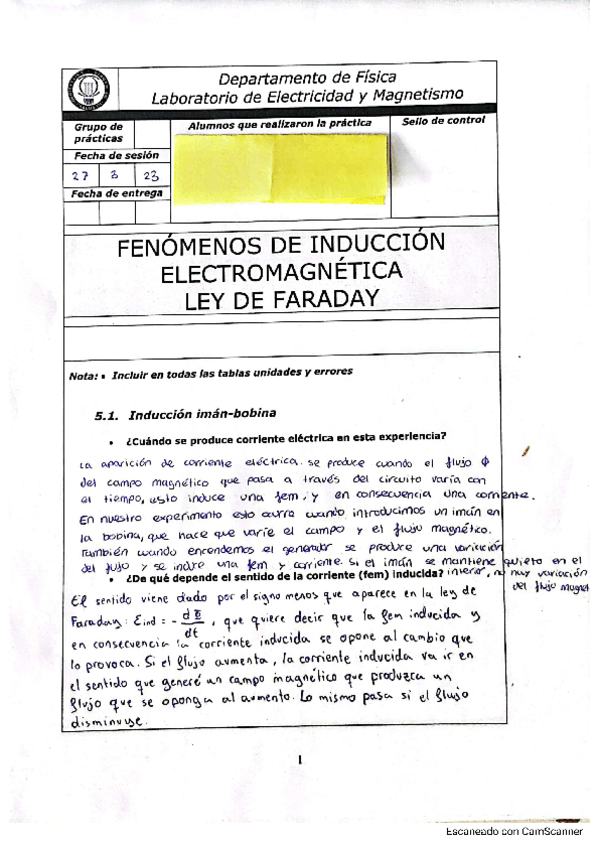 Departamento de Física
Laboratorio de Electricidad y Magnetismo
Grupo de prácticas
Alumnos que realizaron la práctica
Sello de control
Fecha de sesión
27 3 23
Fecha de entrega
FENÓMENOS DE INDUCCIÓN
ELECTROMAGNÉTICA
LEY DE FARADAY
Nota: • Incluir en todas las tablas unidades y errores
5.1. Inducción imán-bobina
• ¿Cuándo se produce corriente eléctrica en esta experiencia?
La aparición de corriente eléctrica. se produce cuando el flujo ϕ
del campo magnético que pasa a través del circuito varía con
el tiempo, esto induce una fem, y en consecuencia una corriente.
En nuestro experimento esto ocurre cuando introducimos un imán en
la bobina, que hace que varíe el campo y el flujo magnético.
También cuando encendemos el generador se produce una variación
del flujo y se induce una fem y corriente. Si el imán se mantiene quieto en el
interior, no hay variación
del flujo magnet
• ¿De qué depende el sentido de la corriente (fem) inducida?
El sentido viene dado por el signo menos que aparece en la ley de
Faraday: Eind = - dΦ/dt, que quiere decir que la fem inducida y
en consecuencia la corriente inducida se opone al cambio que
lo provoca. Si el flujo aumenta, la corriente inducida va ir en
el sentido que genere un campo magnético que produzca un
flujo que se oponga al aumento. Lo mismo pasa si el flujo
disminuye.
1
Escaneado con CamScanner